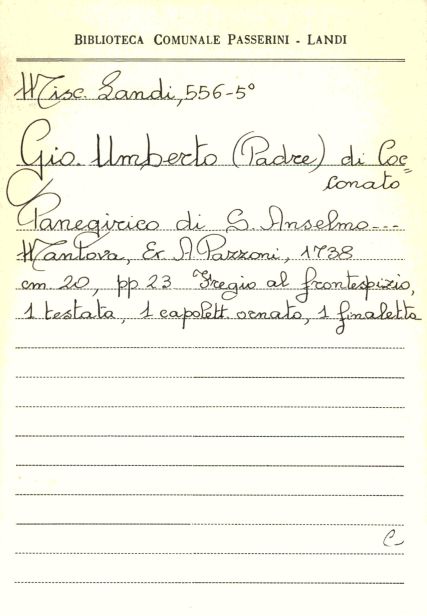 BIBLIOTECA COMUNALE PASSERINI - LANDI
Misc. Landi, 556-5°
Gio. Umberto (Padre) di Coc=
conato
Panegirico di S. Anselmo---
Mantova, Er. A Pazzoni, 1738
cm. 20, pp. 23 Fregio al frontespizio,
1 testata, 1 capolett. ornato, 1 finaletto
C